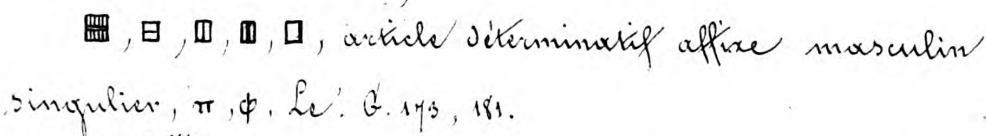 , , , , , article déterminatif affixe masculin
singulier, π, ϕ. Le. G. 173, 181.